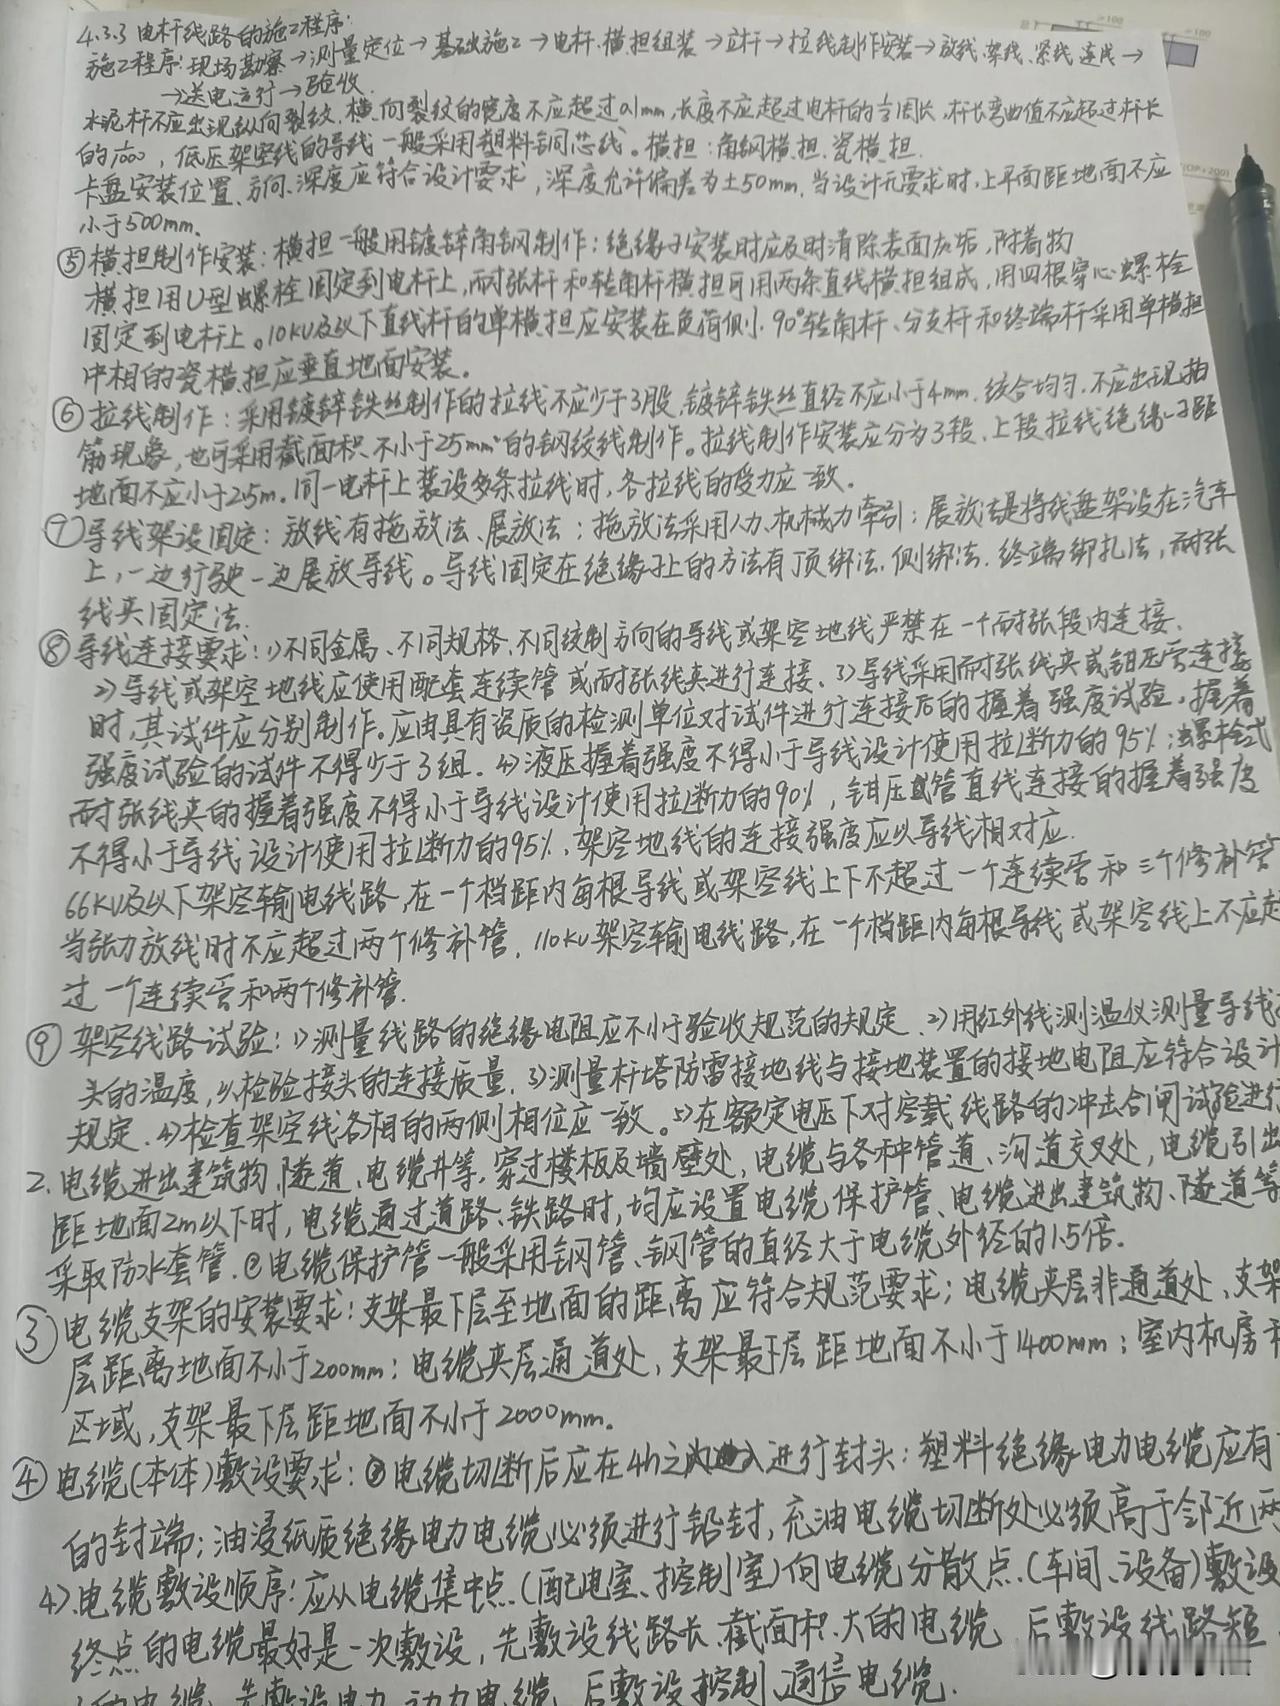 4.3.3 电杆线路的施工程序:
施工程序:现场勘察→测量定位→基础施工→电杆、横担组装→立杆→拉线制作安装→放线、架线、紧线、连线→
→送电运行→验收.
水泥杆不应出现纵向裂纹、横向裂纹的宽度不应超过0.1mm,长度不应超过电杆的1/3周长,杆长弯曲值不应超过杆长
的1/1000,低压架空线的导线一般采用塑料铜芯线。横担:角钢横担、瓷横担.
卡盘安装位置、方向、深度应符合设计要求,深度允许偏差为±50mm,当设计无要求时,上平面距地面不应
小于500mm.
⑤横担制作安装:横担一般用镀锌角钢制作;绝缘子安装时应及时清除表面灰垢,附着物
横担用U型螺栓固定到电杆上,耐张杆和转角杆横担可用两条直线横担组成,用四根穿心螺栓
固定到电杆上。10KV及以下直线杆的单横担应安装在负荷侧、90°转角杆、分支杆和终端杆采用单横担
中相的瓷横担应垂直地面安装。
⑥拉线制作:采用镀锌铁丝制作的拉线不应少于3股,镀锌铁丝直径不应小于4mm,绞合均匀.不应出现抽
筋现象,也可采用截面积不小于25mm²的钢绞线制作。拉线制作安装应分为3段、上段拉线绝缘子距
地面不应小于2.5m.同一电杆上装设多条拉线时,各拉线的受力应一致。
⑦导线架设固定:放线有拖放法、展放法;拖放法采用人力、机械力牵引;展放法是将线盘架设在汽车
上,一边行驶一边展放导线。导线固定在绝缘子上的方法有顶绑法.侧绑法.终端绑扎法,耐张
线夹固定法.
⑧导线连接要求:1)不同金属、不同规格、不同绞制方向的导线或架空地线严禁在一个耐张段内连接.
2)导线或架空地线应使用配套连续管或耐张线夹进行连接.3)导线采用耐张线夹或钳压管连接
时,其试件应分别制作。应由具有资质的检测单位对试件进行连接后的握着强度试验,握着
强度试验的试件不得少于3组.4)液压握着强度不得小于导线设计使用拉断力的95%;螺栓式
耐张线夹的握着强度不得小于导线设计使用拉断力的90%,钳压管直线连接的握着强度
不得小于导线设计使用拉断力的95%,架空地线的连接强度应以导线相对应.
66KV及以下架空输电线路,在一个档距内每根导线或架空线上下不超过一个连续管和三个修补管
当张力放线时不应超过两个修补管,110KV架空输电线路,在一个档距内每根导线或架空线上不应超
过一个连续管和两个修补管.
⑨架空线路试验:1)测量线路的绝缘电阻应不小于验收规范的规定.2)用红外线测温仪测量导线
头的温度,以检验接头的连接质量.3)测量杆塔防雷接地线与接地装置的接地电阻应符合设计
规定.4)检查架空线各相的两侧相位应一致。5)在额定电压下对空载线路的冲击合闸试验进行
2.电缆进出建筑物、隧道、电缆井等,穿过楼板及墙壁处,电缆与各种管道、沟道交叉处,电缆引出
距地面2m以下时,电缆通过道路、铁路时,均应设置电缆保护管、电缆进出建筑物、隧道等
采取防水套管.②电缆保护管一般采用钢管、钢管的直径大于电缆外径的1.5倍.
③电缆支架的安装要求:支架最下层至地面的距离应符合规范要求;电缆夹层非通道处、支架
层距离地面不小于200mm;电缆夹层通道处,支架最下层距地面不小于1400mm;室内机房
区域,支架最下层距地面不小于2000mm.
④电缆(本体)敷设要求:②电缆切断后应在4h之内进行封头;塑料绝缘电力电缆应有
的封端;油浸纸质绝缘电力电缆必须进行铅封,充油电缆切断处必须高于邻近两
4).电缆敷设顺序:应从电缆集中点.(配电室、控制室)向电缆分散点.(车间、设备)敷设
终点的电缆最好是一次敷设,先敷设线路长、截面积大的电缆 后敷设线路短
的电缆 先敷设电力、动力电缆 后敷设控制、通信电缆.